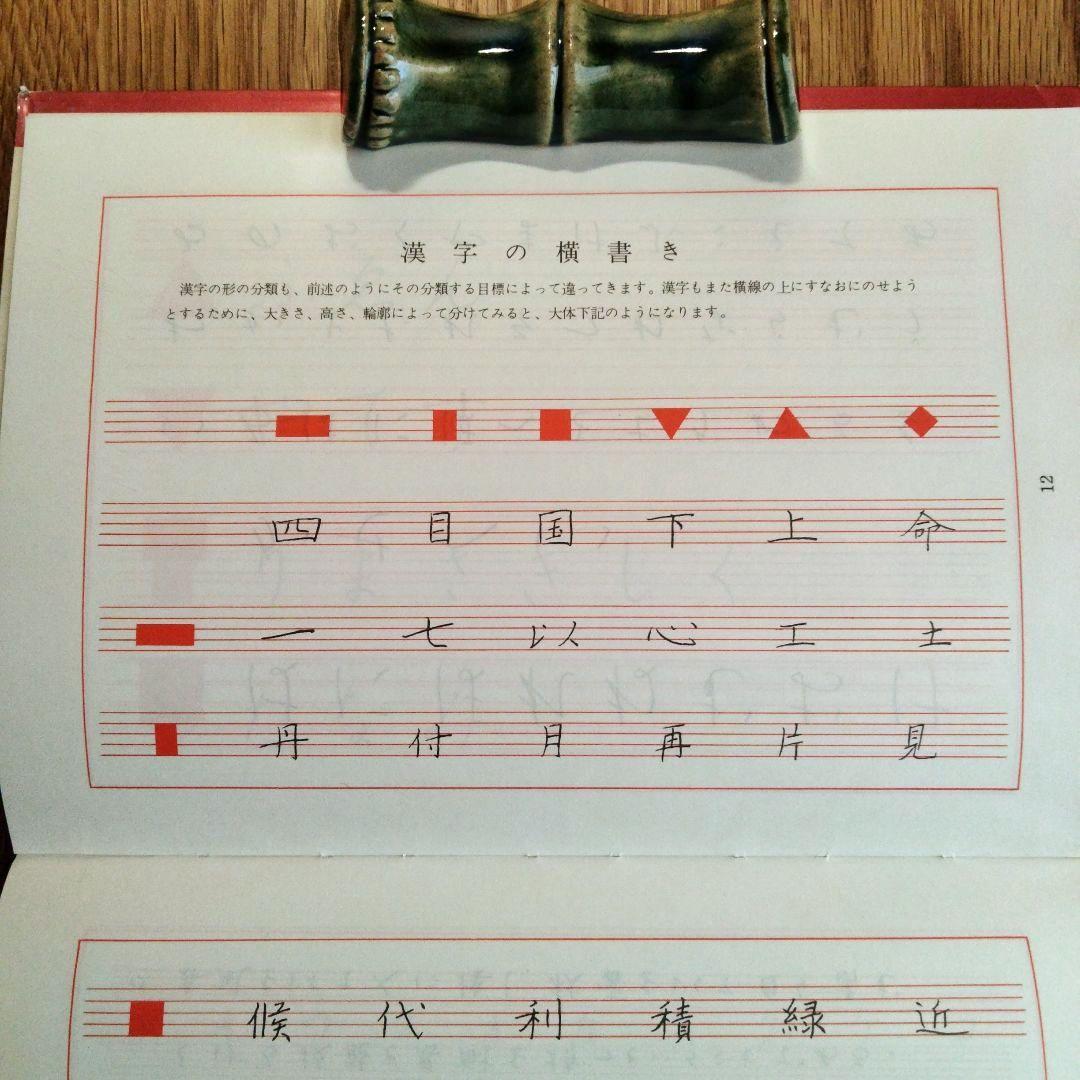 漢字の横書き
漢字の形の分類も、前述のようにその分類する目標によって違ってきます。漢字もまた横線の上にすなおにのせよう
とするために、大きさ、高さ、輪廓によって分けてみると、大体下記のようになります。
四 目 国 下 上 命
12
一 七 以 心 工 土
丹 付 月 再 片 見
候 代 利 積 緑 近